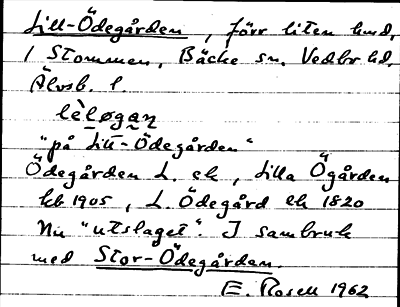 Lill-Ödegården, förr liten hmd,
1 Stommen, Bäcke sn. Vedbo hd.
Älvsb. l.
lèløgan
"på Lill-Ödegården"
Ödegården L. ek, Lilla Ögården
kb 1905, L. Ödegård ek 1820
Nu "utslaget". I sambruk
med Stor-Ödegården.
E. Rosell 1962